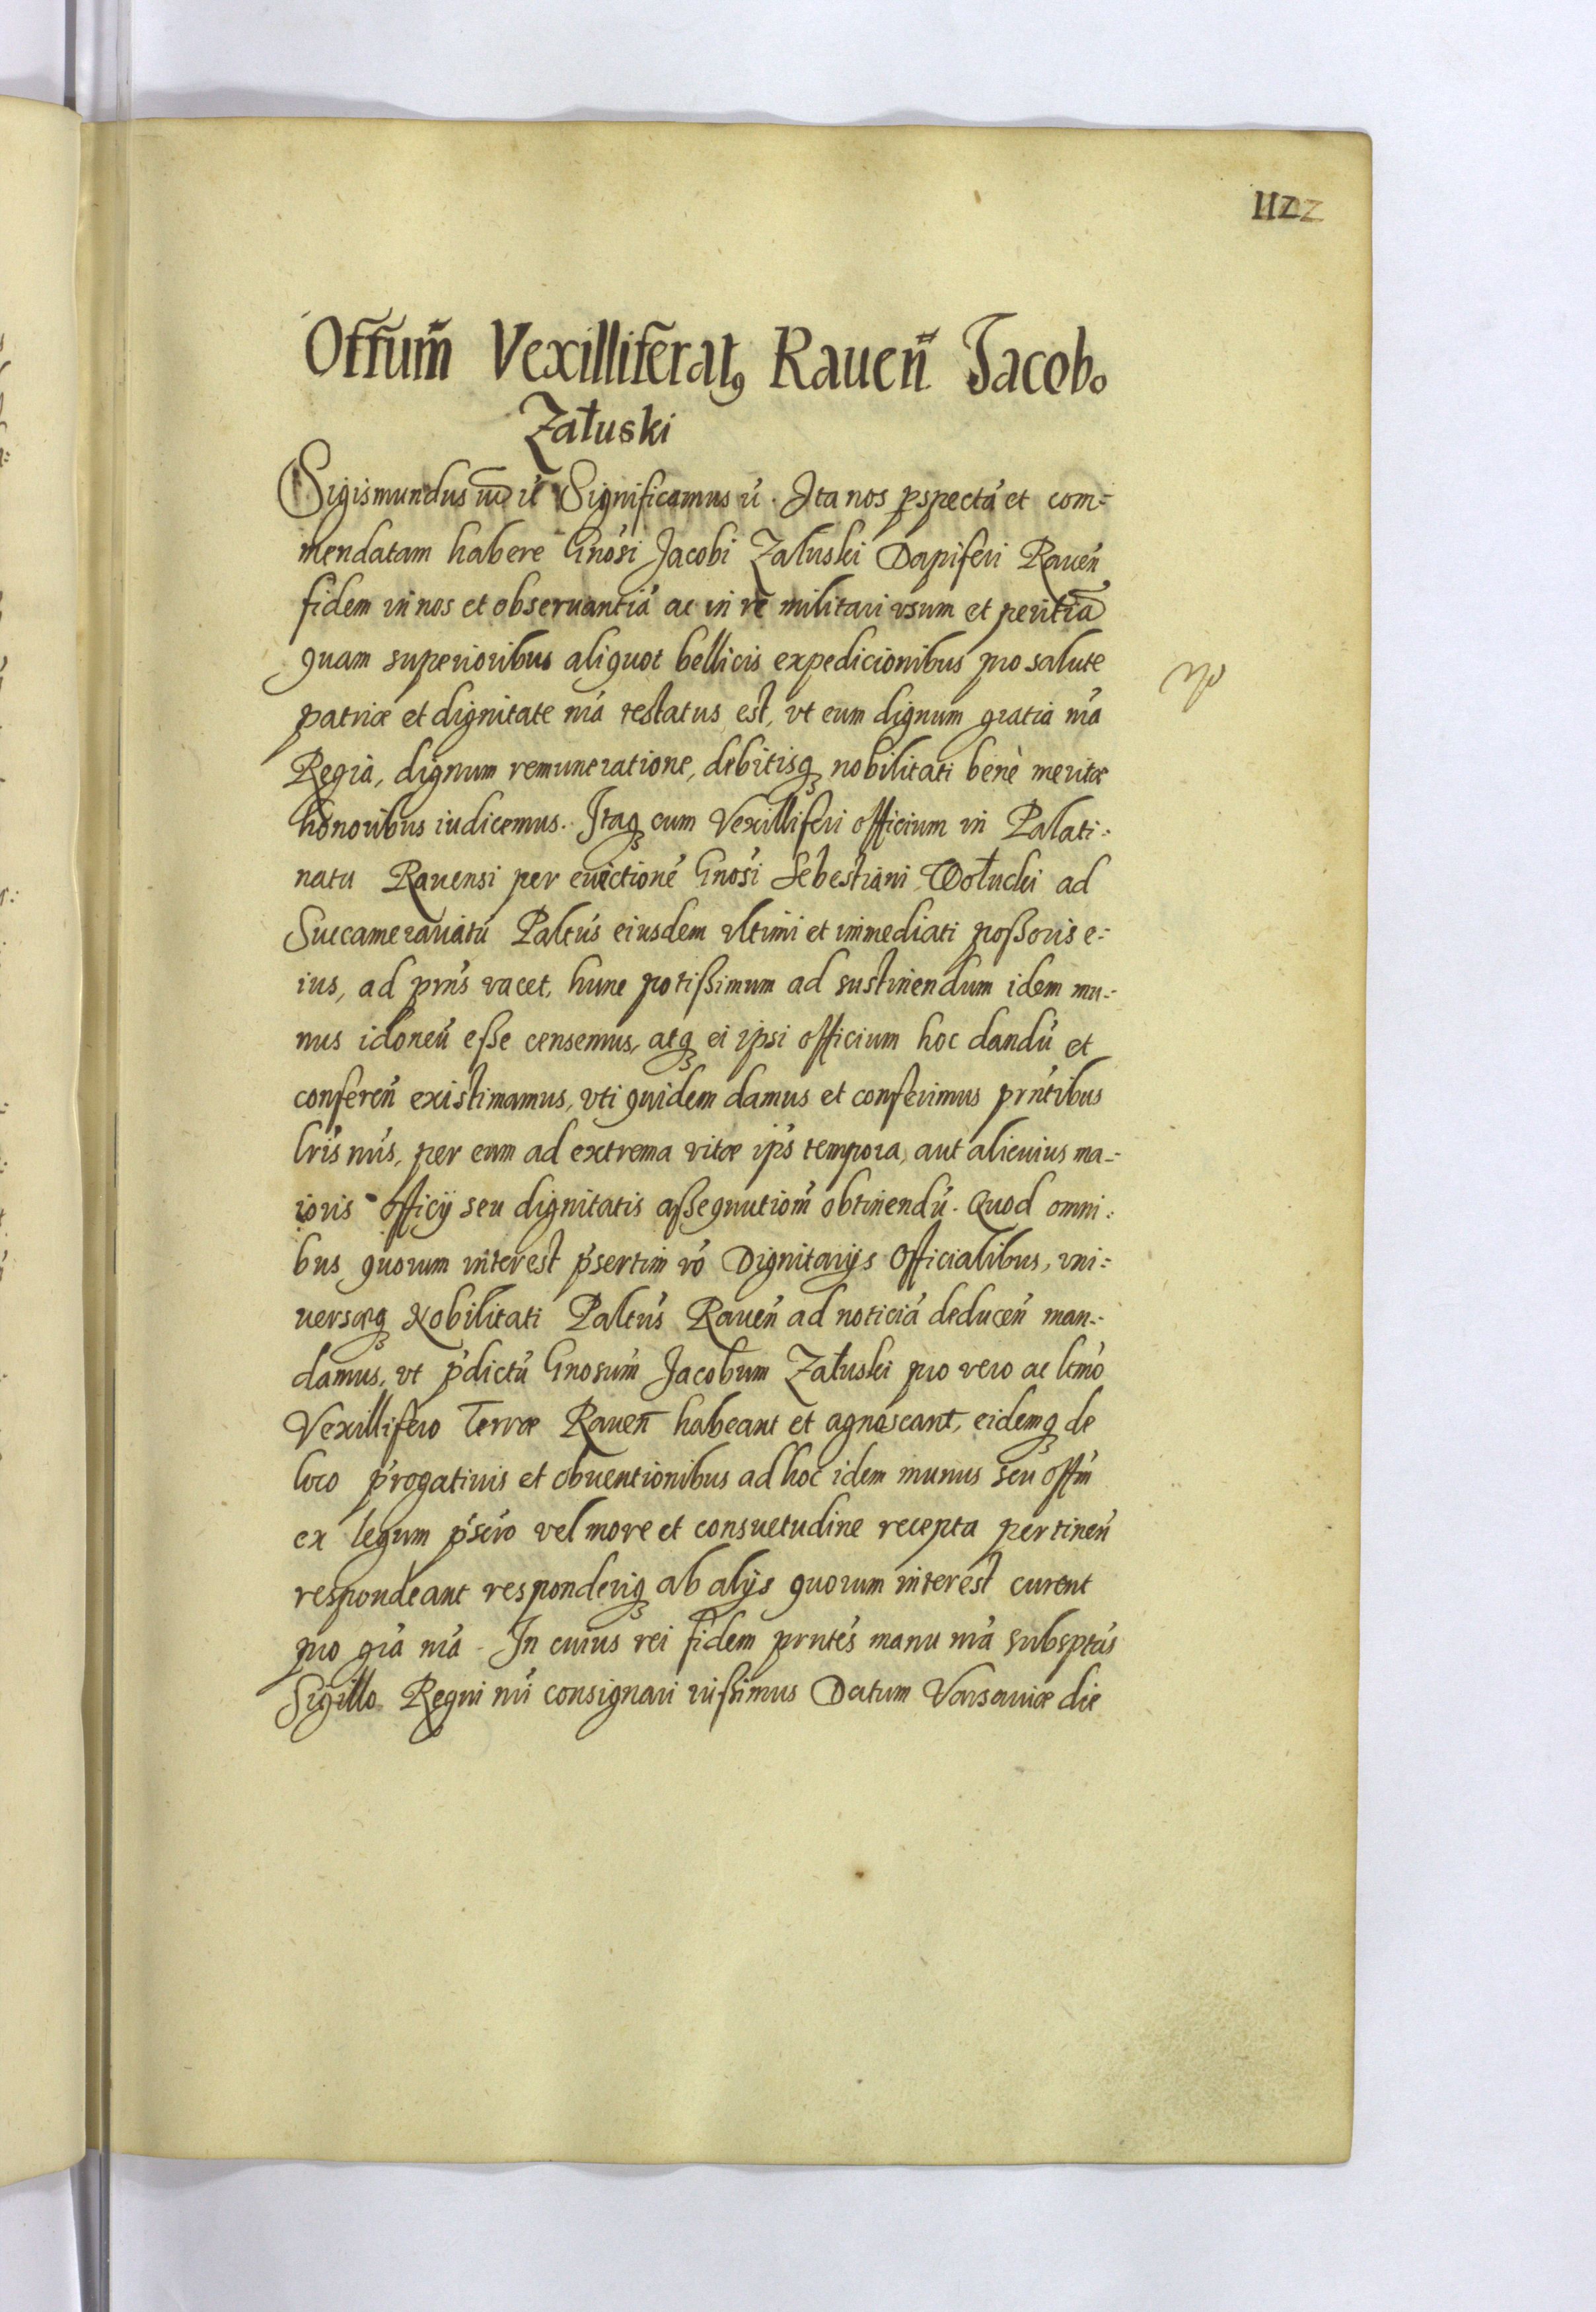 1122
Offium̃ Vexilliferat9 Rauen̄ Jacobo
Załuski
Sigismundus iii etć Significamus ú. Ita nos pspectá et com=
mendatam habere Gnósi Jacobi Zaluski Dapiferi Rauen̄
fidem in nos et obseruantiá ac in re militari vsum et peritiā
quam superioribus aliquot bellicis expedicionibus pro salute
patriæ et dignitate nrá testatus est, vt eum dignum gratia nrá
Regia, dignum remuneratione, debitisq3 nobilitati benè meritæ
honoribus iudicemus. Itaq3 cum Vexilliferi officium in Palati:
natu Rauensi per euictioné Gnósi Sebestiani Wołucki ad
Succamerariatú Paltús eiusdem vltimi et immediati poßoris e=
ius, ad prńs vacet, hunc potißimum ad sustinendum idem mu=
nus idoneú eße censemus, atq3 ei ipsi officium hoc dandú et
conferen̄ existimamus, vti quidem damus et conferimus prńtibus
lrís nrís, per eum ad extrema vitæ ipś tempora, aut alicuius ma=
ioris officÿ seu dignitatis aßequutiom̄ obtinendú. Quod omni:
bus quorum interest pśertim vó Dignitarÿs Officialibus, vni:
uersæq3 Nobilitati Paltús Rauen̄ ad noticiá deducen̄ man=
damus, vt pdictú Gnosum̄ Jacobum Załuski pro vero ac ltmó
Vexillifero Terræ Rauen̄ habeant et agnoscant, eidemq3 de
loco progatiuis et obuentionibus ad hoc idem munus seu offm̄
ex legum pścró vel more et consuetudine recepta pertinen̄
respondeant responderiq3 ab alÿs quorum interest curent
pro grá nrá. In cuius rei fidem prntés manu nrá subsptás
Sigillo Regni nrí consignari iußimus Datum Varsauiæ die